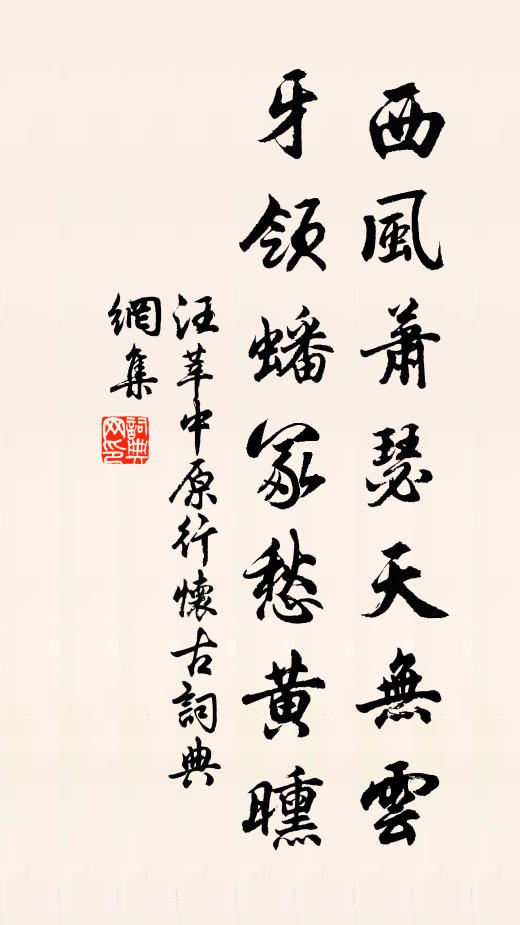 西風蕭瑟天無雲
牙領蟠冢愁黃曛
汪莘中原行懷古詞典
網集
詞典網印